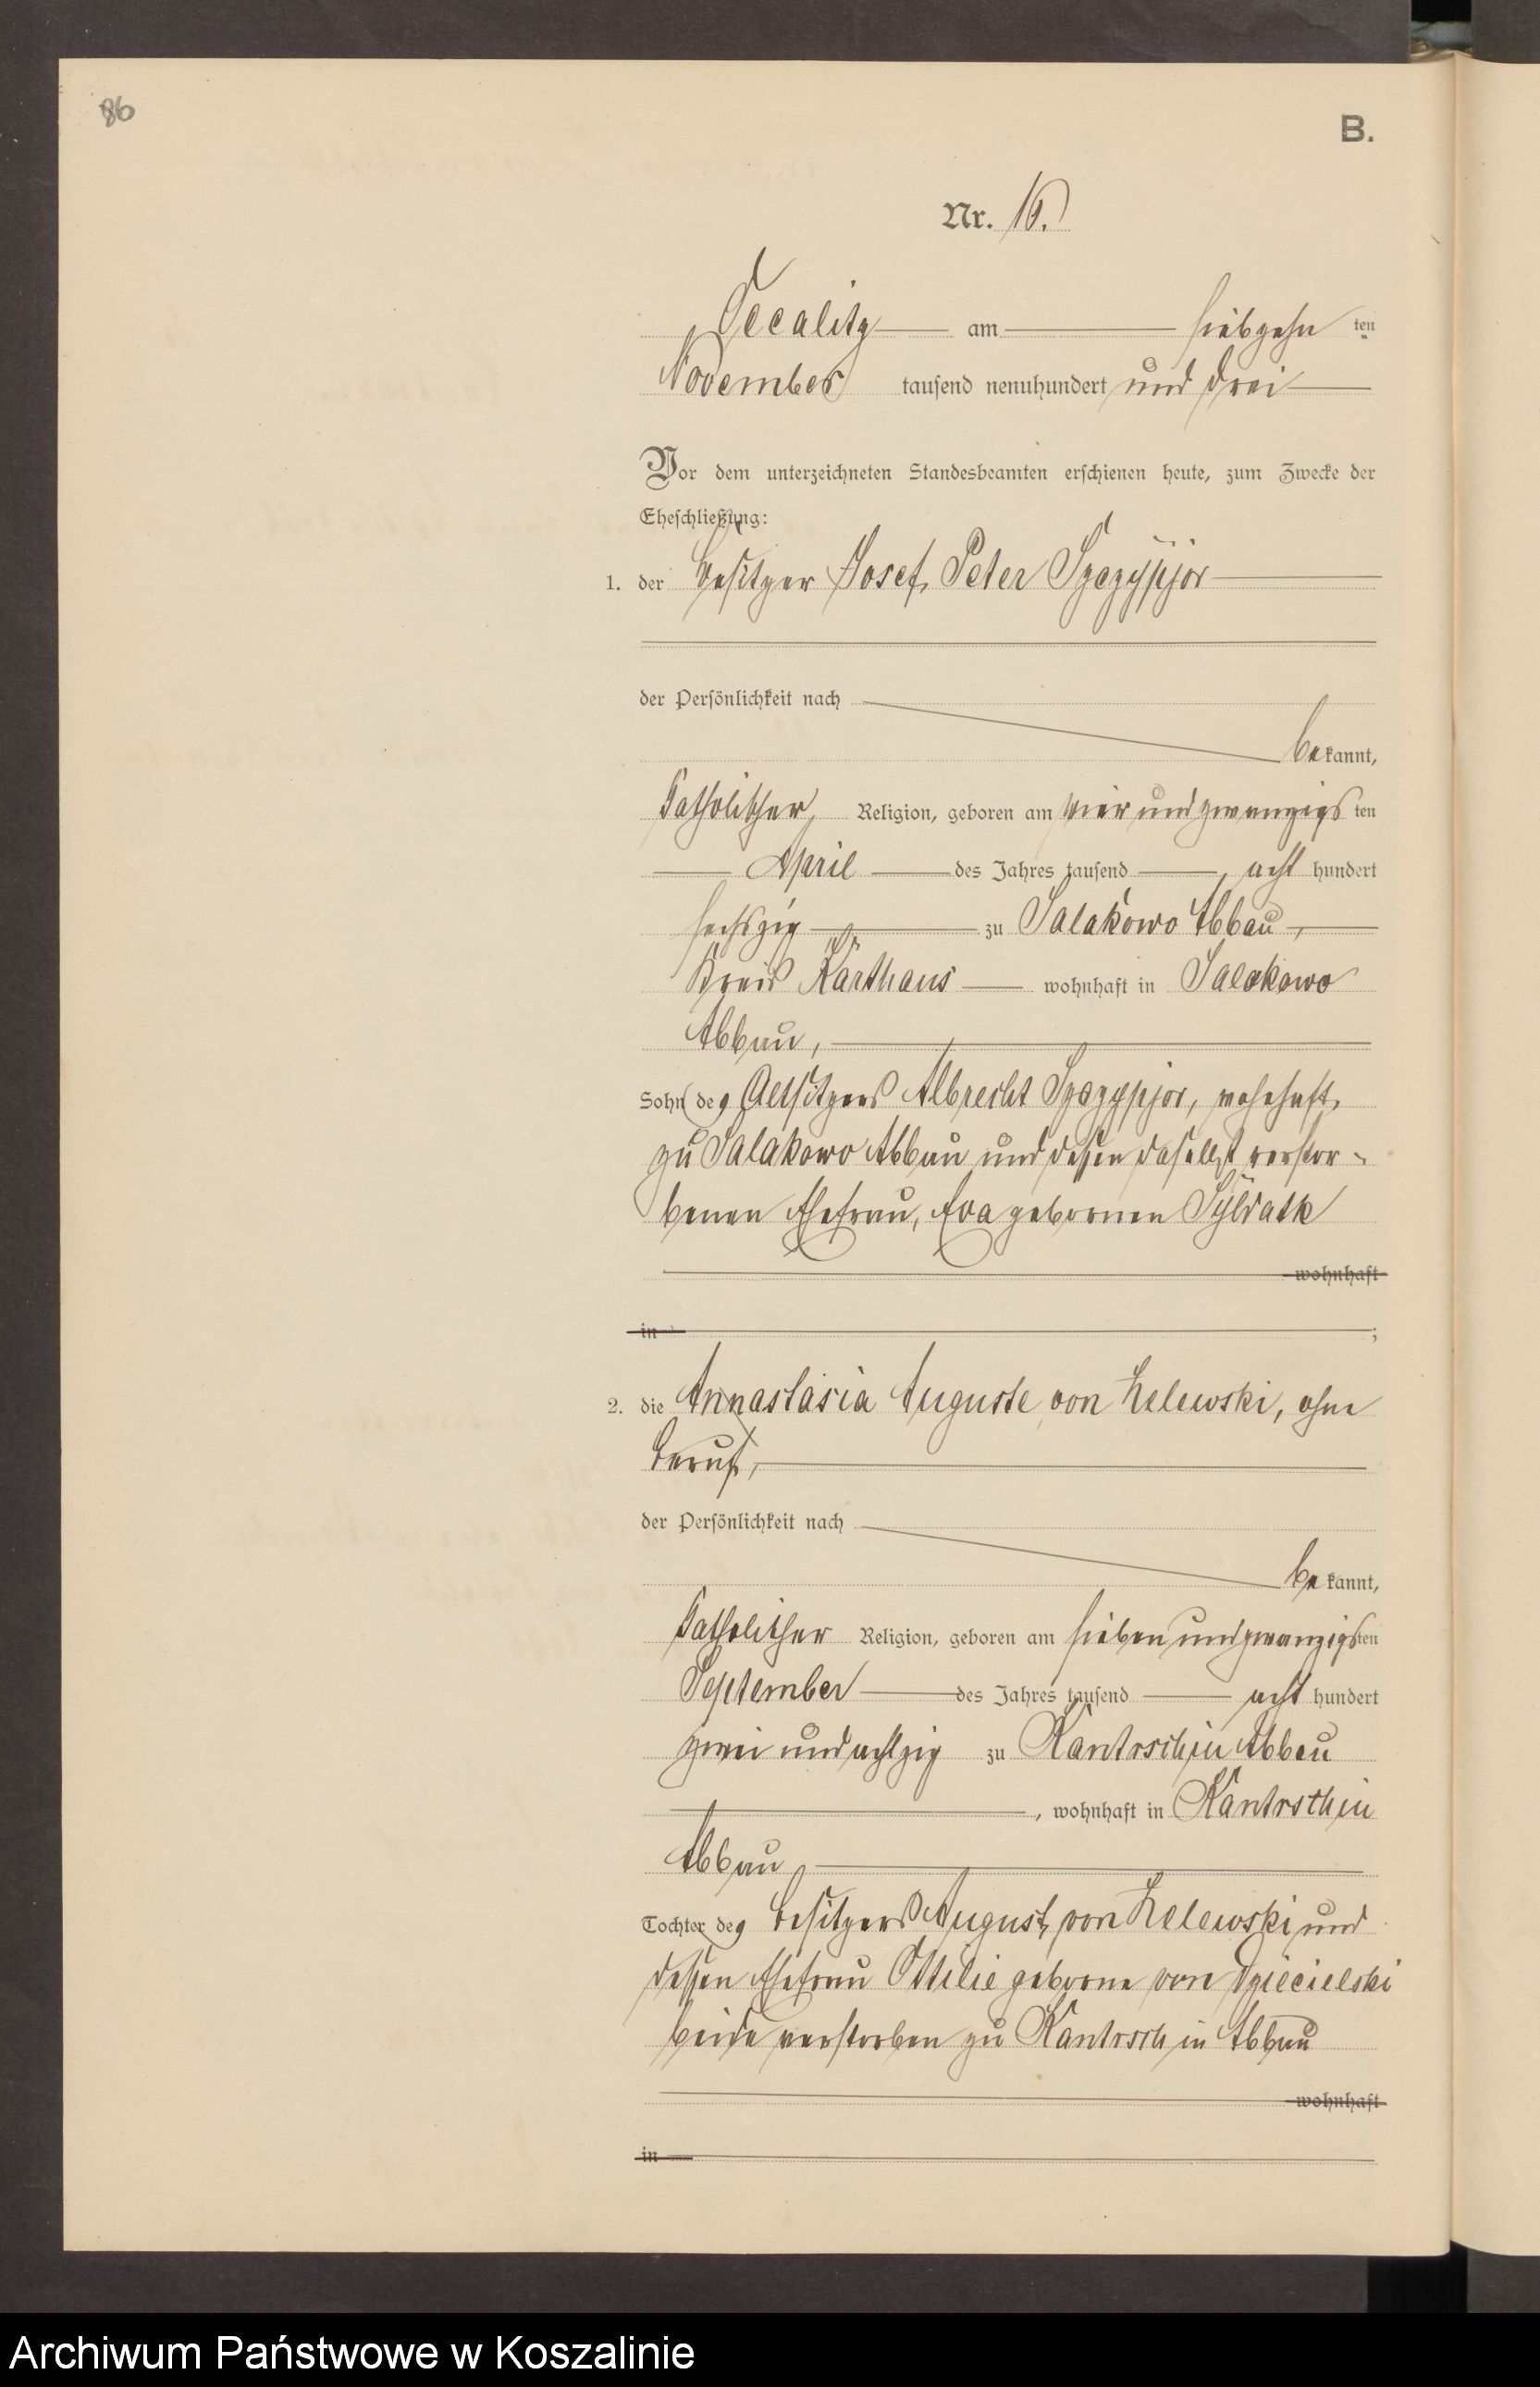 86
B.
Nr. 16.
Occalitz am siebzehn ten
November tausend neunhundert und drei
Vor dem unterzeichneten Standesbeamten erschienen heute, zum Zwecke der
Eheschließung:
1. der Besitzer Josef Peter Szczypjor
der Persönlichkeit nach
be kannt,
katholischer Religion, geboren am vier und zwanzigs ten
April des Jahres tausend acht hundert
sechszig zu Salakowo Abbau,
Kreis Karthaus wohnhaft in Salakowo
Abbau,
Sohn des Altsitzers Albrecht Szczypjor, wohnhaft
zu Salakowo Abbau und dessen daselbst verstor-
benen Ehefrau, Eva gebornen Syldatk
wohnhaft
in ;
2. die Annastasia Auguste von Zelewski, ohne
Beruf,
der Persönlichkeit nach
be kannt,
katholischer Religion, geboren am sieben und zwanzigs ten
September des Jahres tausend acht hundert
zwei und achtzig zu Kantrschin Abbau
, wohnhaft in Kantrschin
Abbau
Tochter des Besitzers August von Zelewski und
dessen Ehefrau Ottilie geborne von Dziecielski
beide verstorben zu Kantrschin Abbau
wohnhaft
in
Archiwum Państwowe w Koszalinie